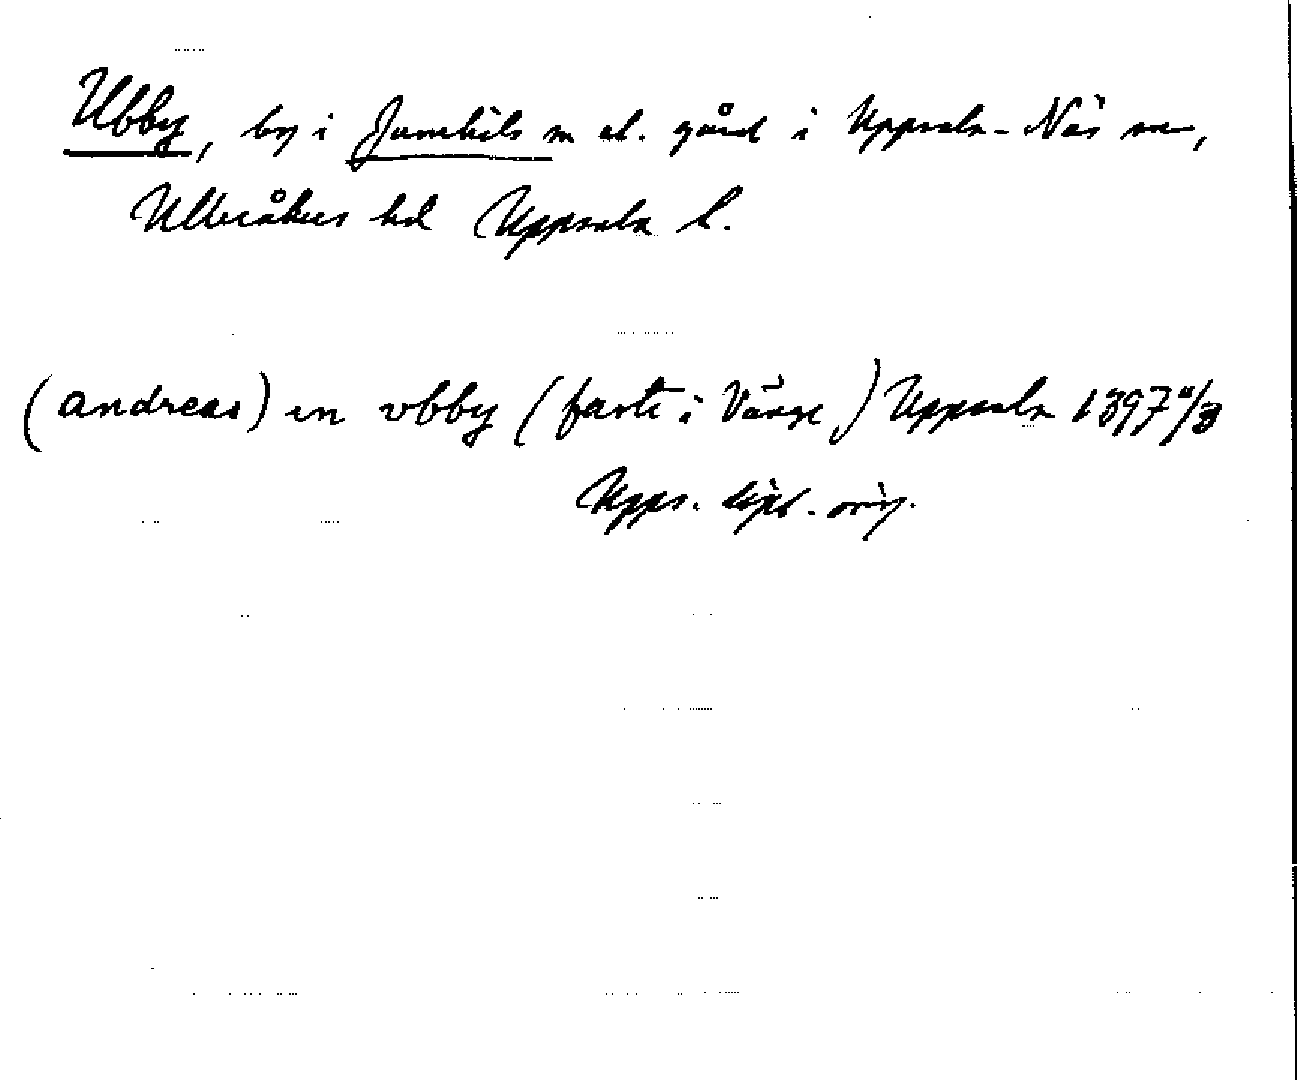 Ubby, by i Jumkils sn el. gård i Uppsala-Näs sn,
Ulleråkers hd Uppsala l.
(andreas) in vbby (faste i Vänge) Uppsala 1397 /3
Upps. dipl. orig.